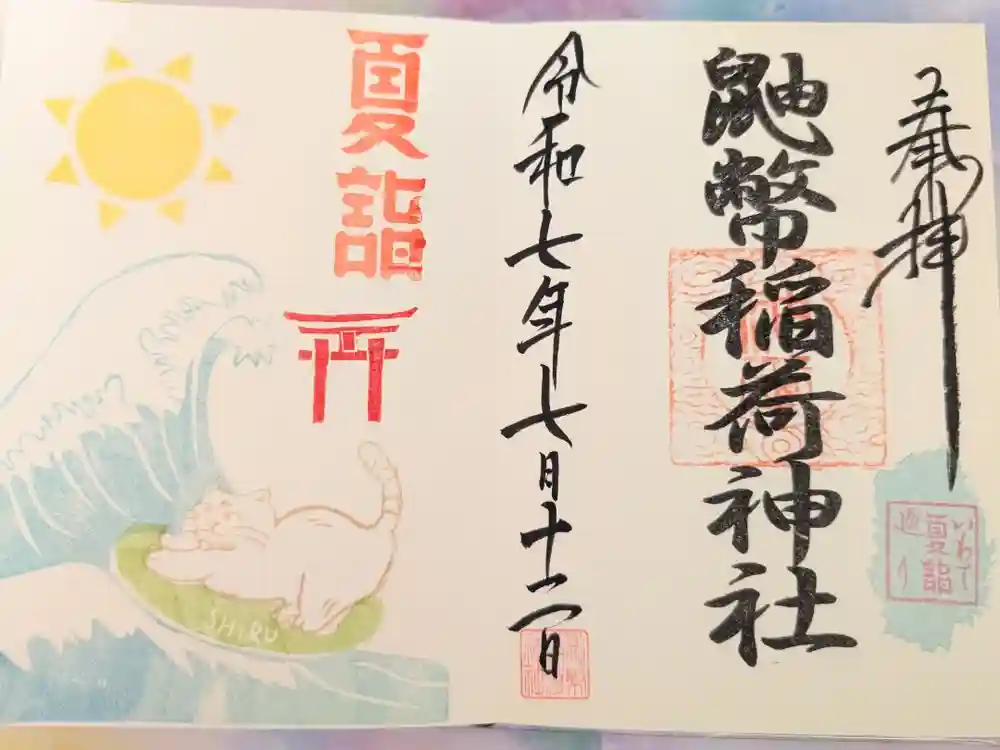 奉拝
鼬幣稲荷神社
令和七年七月十二日
夏詣
いわて
夏詣
巡り
SHIRU